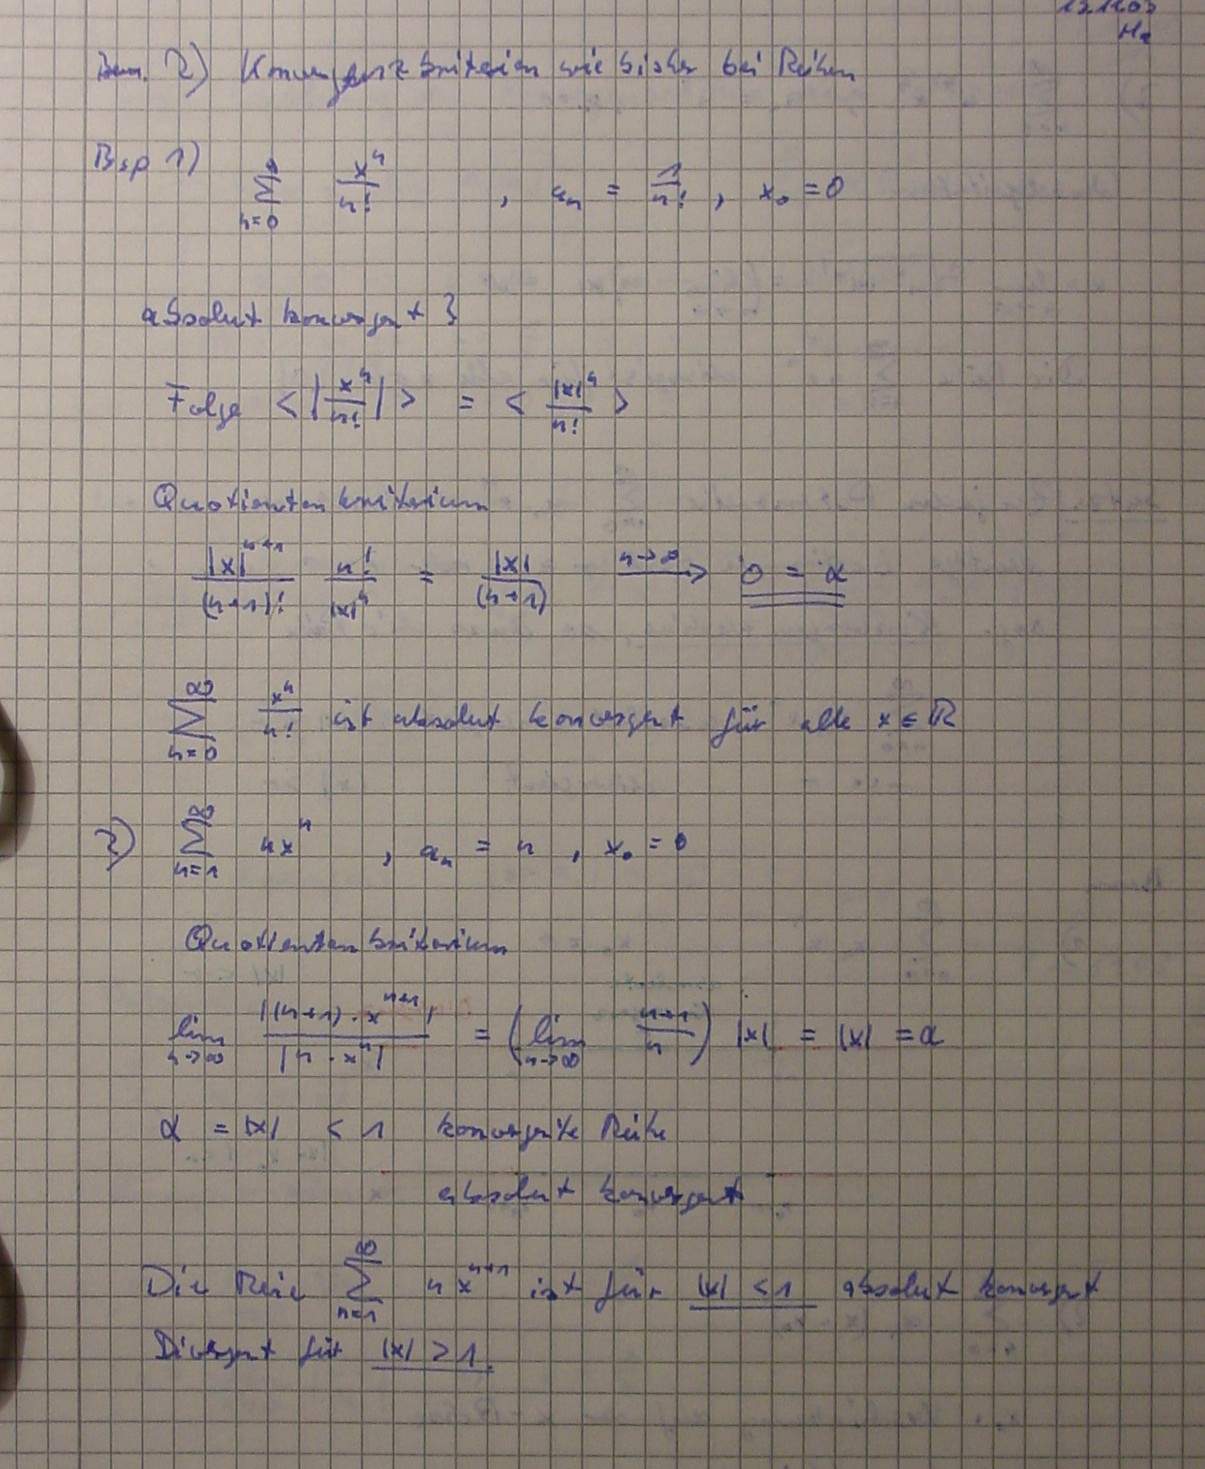 Bem. 2) Konvergenzkriterien wie bisher bei Reihen
Bsp 1) ∑_{n=0}^{∞} x^n/n! , a_n = 1/n! , x_0 = 0
absolut konvergent }
Folge < |x^n/n!| > = < |x|^n/n! >
Quotientenkriterium
|x|^{n+1}/(n+1)! n!/|x|^n = |x|/(n+1) →^{n→∞} 0 = α
∑_{n=0}^{∞} x^n/n! ist absolut konvergent für alle x ∈ ℝ
2) ∑_{n=1}^{∞} nx^n , a_n = n , x_0 = 0
Quotientenkriterium
lim_{n→∞} |(n+1)·x^{n+1}|/|n·x^n| = (lim_{n→∞} (n+1)/n) |x| = |x| = α
α = |x| < 1 konvergente Reihe
absolut konvergent
Die Reie ∑_{n=1}^{∞} n x^{n+1} ist für |x| < 1 absolut konvergent
Divergent für |x| > 1